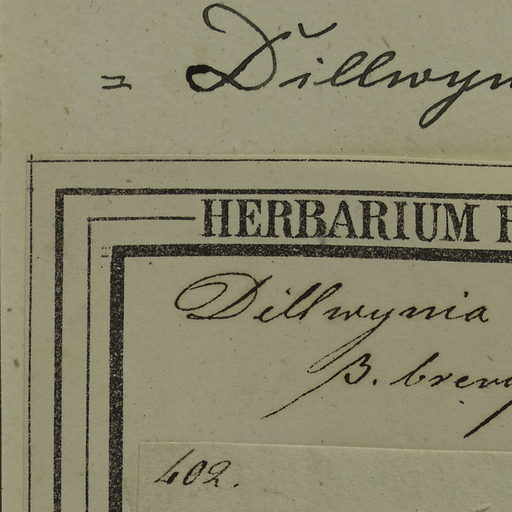 = Dillwyn
HERBARIUM
Dillwynia
β. brev
402.